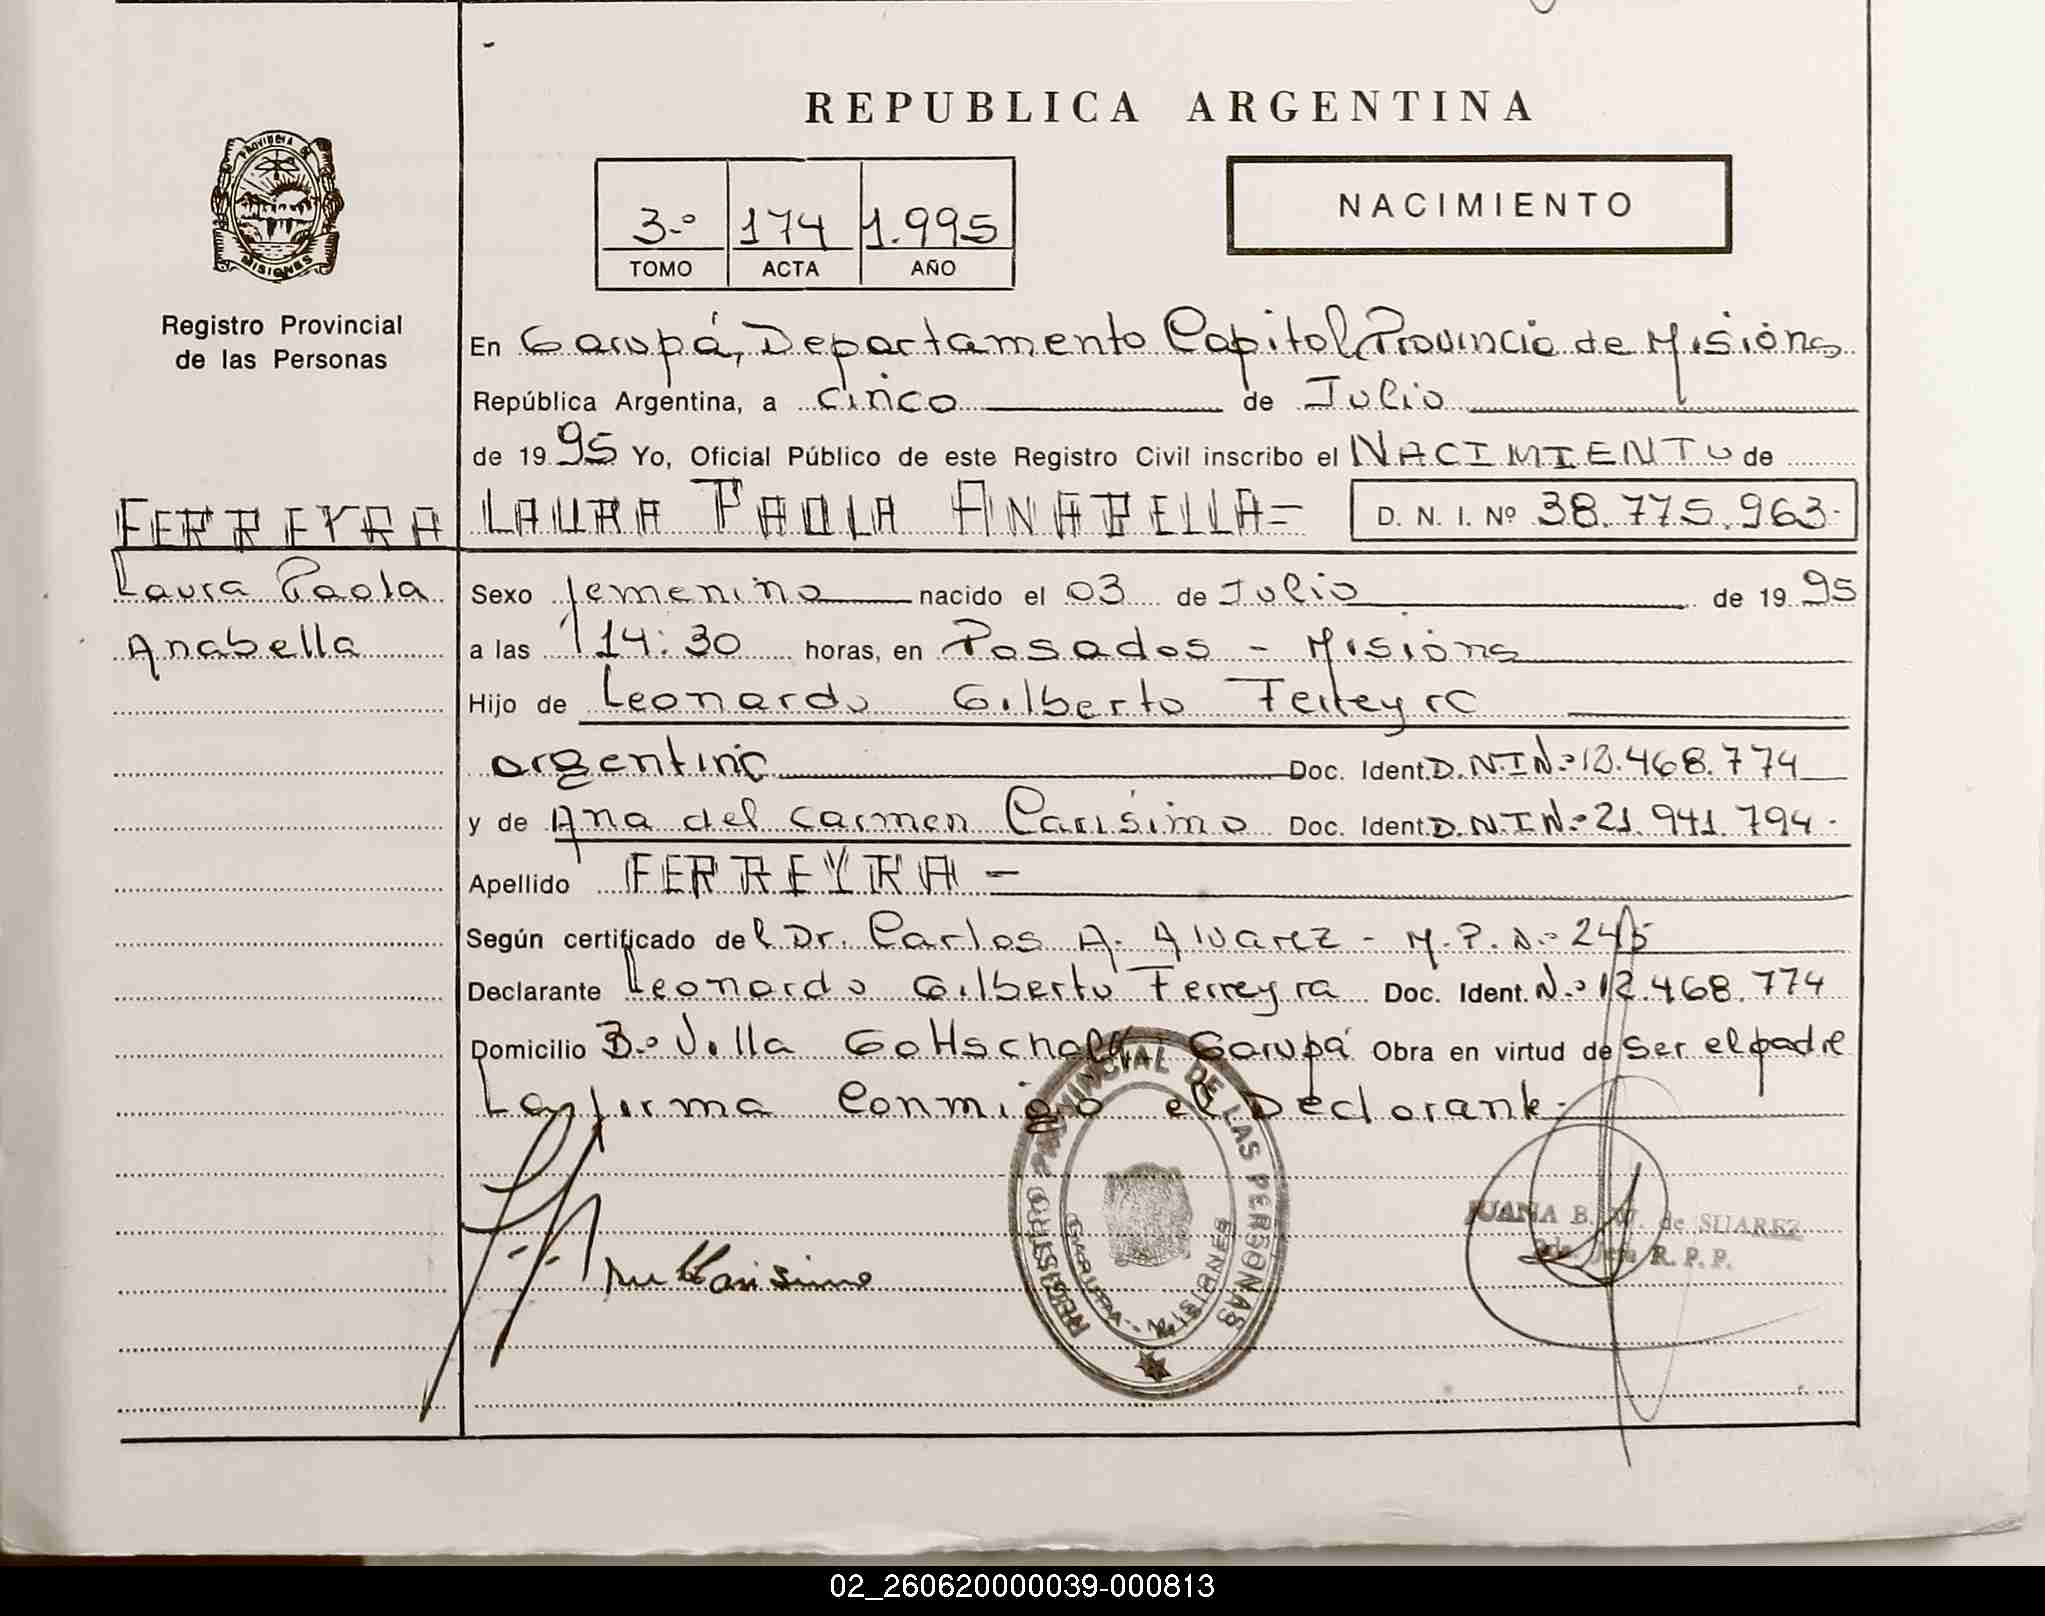 REPUBLICA ARGENTINA
PROVINCIA DE MISIONES
3.º 174 1.995
TOMO ACTA AÑO
NACIMIENTO
Registro Provincial
de las Personas
En Garupá, Departamento Capital, Provincia de Misiones
República Argentina, a cinco de Julio
de 1995 Yo, Oficial Público de este Registro Civil inscribo el NACIMIENTO de
LAURA PAOLA ANABELLA= D. N. I. Nº 38.775.963-
FERREYRA
Laura Paola
Anabella
Sexo femenino nacido el 03 de Julio de 1995
a las 14:30 horas, en Posadas - Misiones
Hijo de Leonardo Gilberto Ferreyra
argentino Doc. Ident. D.N.I Nº 12.468.774
y de Ana del Carmen Carísimo Doc. Ident. D.N.I Nº 21.941.794-
Apellido FERREYRA -
Según certificado del Dr. Carlos A. Alvarez - M.P.Nº 245
Declarante Leonardo Gilberto Ferreyra Doc. Ident. Nº 12.468.774
Domicilio Bº Villa Gottschalk Garupá Obra en virtud de ser el padre
firma conmigo el Declarante-
REGISTRO PROVINCIAL DE LAS PERSONAS
GARUPA - MISIONES
JUANA B. de SUAREZ
Jefe R. P. P.
02_260620000039-000813